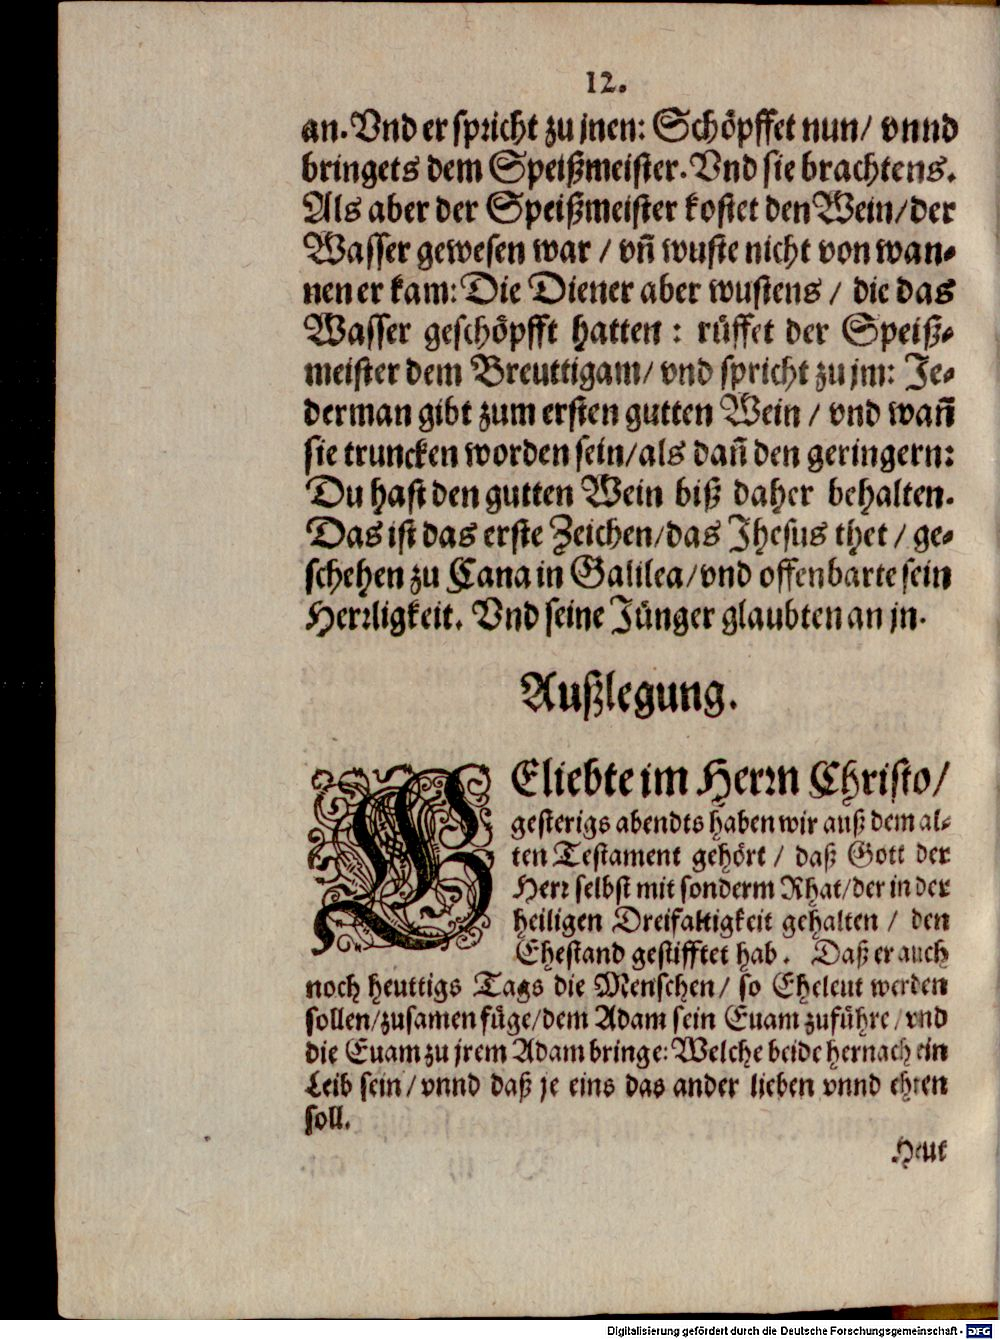 12.
an. Vnd er spricht zu jnen: Schöpffet nun/ vnnd
bringets dem Speißmeister. Vnd sie brachtens.
Als aber der Speißmeister kostet den Wein/ der
Wasser gewesen war / vñ wuste nicht von wan-
nen er kam: Die Diener aber wustens / die das
Wasser geschöpfft hatten : rüffet der Speiß-
meister dem Breuttigam/ vnd spricht zu jm: Je-
derman gibt zum ersten gutten Wein / vnd wañ
sie truncken worden sein/ als dañ den geringern:
Du hast den gutten Wein biß daher behalten.
Das ist das erste Zeichen/ das Jhesus thet / ge-
schehen zu Cana in Galilea/ vnd offenbarte sein
Herrligkeit. Vnd seine Jünger glaubten an jn.
Außlegung.
GEliebte im Herrn Christo/
gesterigs abendts haben wir auß dem al-
ten Testament gehört / daß Gott der
Herr selbst mit sonderm Rhat/ der in der
heiligen Dreifaltigkeit gehalten / den
Ehestand gestifftet hab. Daß er auch
noch heuttigs Tags die Menschen/ so Eheleut werden
sollen/ zusamen füge/ dem Adam sein Euam zuführe/ vnd
die Euam zu jrem Adam bringe: Welche beide hernach ein
Leib sein/ vnnd daß je eins das ander lieben vnnd ehren
soll.
Heut
Digitalisierung gefördert durch die Deutsche Forschungsgemeinschaft - DFG